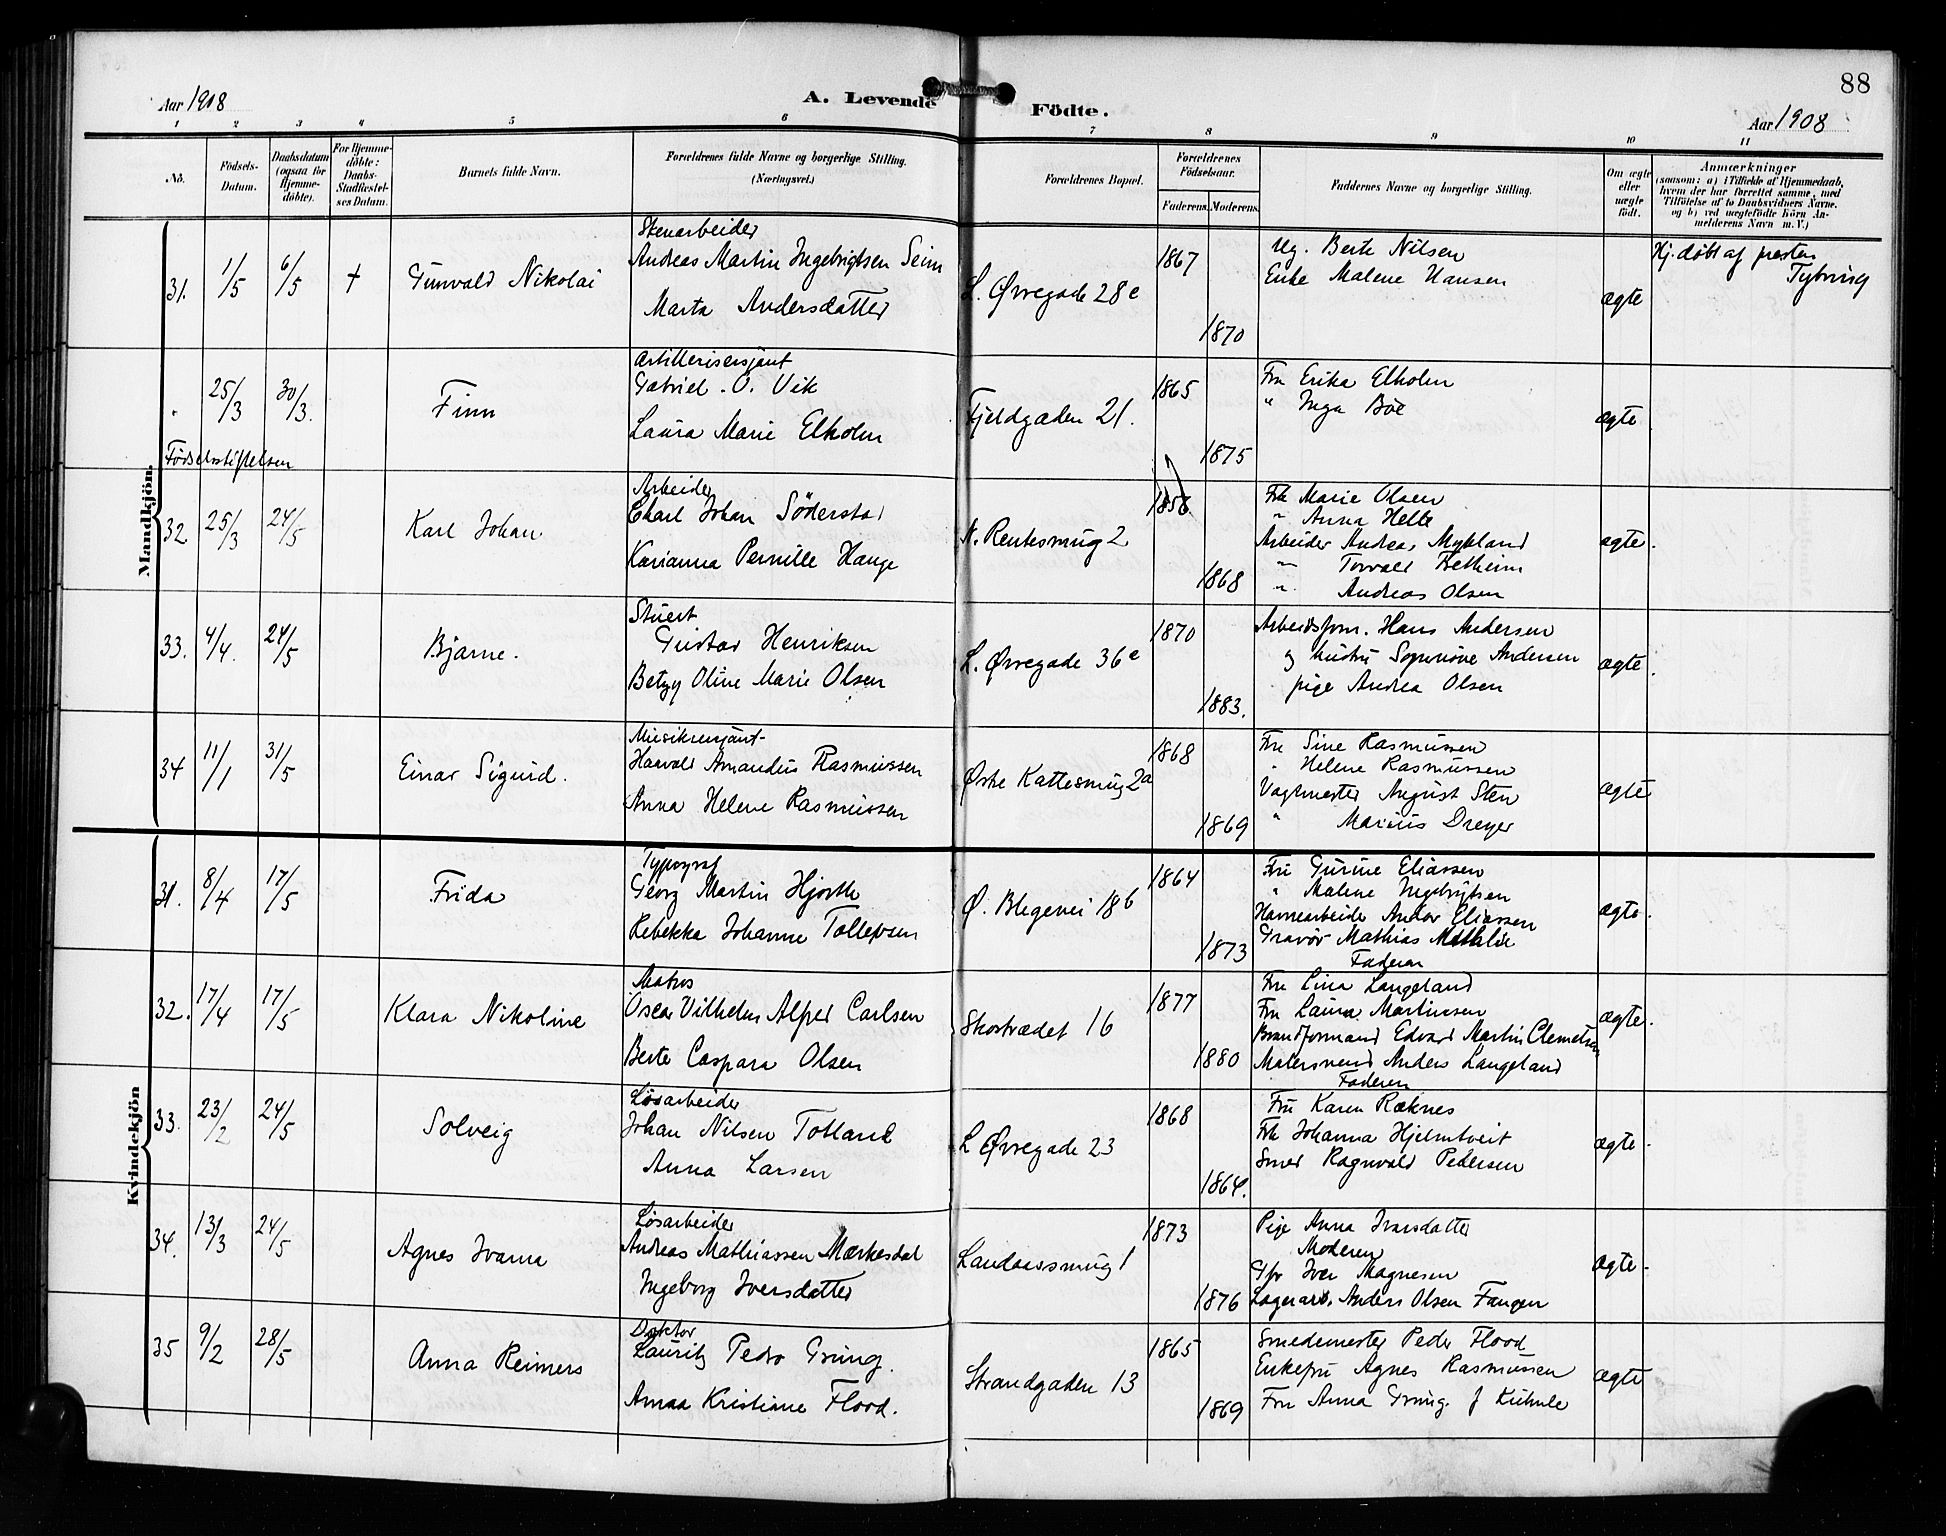 88
Aar 1908
A. Levende Födte.
Aar 1908
1 2 3 4 5 6 7 8 9 10 11
No.
Födsels-Datum.
Daabsdatum (ogsaa for Hjemme-döbte).
For Hjemme-döbte: Daabs-Stadfæstel-ses Datum.
Barnets fulde Navn.
Forældrenes fulde Navne og borgerlige Stilling. (Næringsvei.)
Forældrenes Bopæl.
Forældrenes Födselsaar.
Faderens. Moderens.
Faddernes Navne og borgerlige Stilling.
Om ægte eller uægte födt.
Anmærkninger
(saasom: a) i Tilfælde af Hjemmedaab, hvem der har forrettet samme, med Tilföielse af to Daabsvidners Navne. og b) ved uægtefödte Börn An-melderens Navn m. V.)
Mandkjön.
31. 1/5 6/5 + Gunvald Nikolai
Stenarbeider
Andreas Martin Ingebrigtsen Seim
Marta Andersdatter
L. Øvregade 28c
1867
1870
Ug. Berte Nilsen
Enke Malene Hansen
ægte
Hj. døbt af presten
Tybring
" 25/3 30/3. Finn
Fødselsstiftelsen
Artillerisersjant
Gabriel. O. Vik
Laura Marie Elholm
Fjeldgaden 21.
1865
1875
Fru Erika Elholm
" Inga Böe
ægte
32 25/3 24/5 Karl Johan
Arbeider
Charl Johan Söderstad
Karianna Pernille Hauge
N. Rentesmug 2
1868
Frk Marie Olsen
" Anna Helle
Arbeider Andreas Mykland
" Torvald Fretheim
" Andreas Olsen
ægte.
33. 4/4. 24/5 Bjarne.
Stuert
Gustav Henriksen
Betzy Oline Marie Olsen
L. Øvregade 36c
1870
1883.
Arbeidsform. Hans Andersen
og hustru Andersen
pige Andrea Olsen
ægte.
34 11/1 31/5 Einar Sigurd.
Musiksersjant
Haavald Amandus Rasmussen
Anna Helene Rasmussen
Østre Kattesmug 2a
1868
1869
Fru Sine Rasmussen
" Helene Rasmussen
Vagtmester August Sten
" Marius Dreyer
ægte
Kvindekjön
31. 8/4 17/5 Frida
Typograf
Georg Martin Hjorth
Rebekka Johanne Tollefsen
Ø. Blegevei 18b
1864
1873
Fru Gurine Eliassen
" Malene Ingebrigtsen
Havnearbeider Andor Eliassen
Gravör Mathias
Faderen
ægte.
32. 17/4 17/5 Klara Nikoline
Matros
Oscar Vilhelm Alfred Carlsen
Berte Caspara Olsen
Skostrædet 16
1877
1880
Fru Lina Langeland
Fru Laura Martinsen
Brandformand Edvard Martin Clemetsen
Malersvend Anders Langeland
Faderen
ægte.
33. 23/2 24/5 Solveig
Løsarbeider
Johan Nilsen Totland
Anna Larsen
L Øvregade 23
1868
1864.
Fru Karen Ræknes
Frk Johanna Hjelmtveit
Smed Ragnvald Pedersen
ægte.
34. 13/3 24/5 Agnes Ivarna
Løsarbeider
Andreas Mathiassen Mærkesdal
Ingeborg Iversdatter
Landaassmug 1
1873
1876
Pige Anna Ivarsdatter
Moderen
Iver Magnesen
Lagerarb. Anders Olsen Fangen
ægte.
35 9/2 28/5 Anna Reimers
Doktor
Lauritz Pedro Grung.
Anna Kristiane Flood.
Strandgaden 13
1865
1869
Smedemester Peder Flood
Enkefru Agnes Rasmussen
Fru Anna Grung
ægte